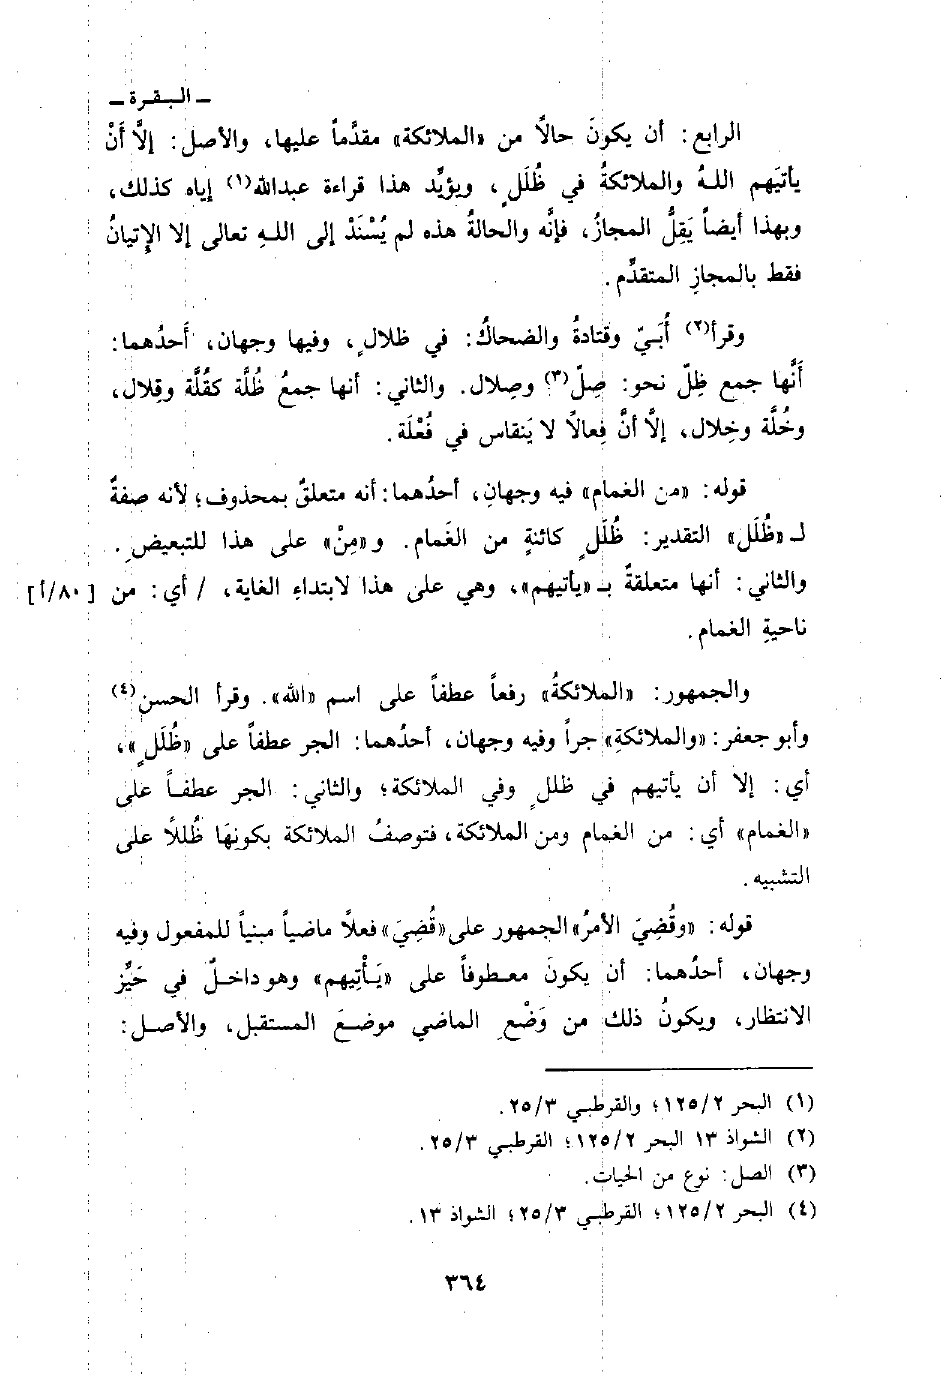 ـ البقرة ـ
الرابع: أن يكونَ حالاً من «الملائكة» مقدَّماً عليها، والأصل: إلَّا أَنْ
يأتيَهم اللهُ والملائكةُ في ظُلَلٍ، ويؤيِّد هذا قراءة عبدالله(١) إياه كذلك،
وبهذا أيضاً يَقِلُّ المجازُ، فإنَّه والحالةُ هذه لم يُسْنَدْ إلى اللهِ تعالى إلا الإِتيانُ
فقط بالمجازِ المتقدِّم.
وقرأ(٢) أُبَيّ وقتادةُ والضحاكُ: في ظلالٍ، وفيها وجهان، أَحدُهما:
أَنَّها جمع ظِلّ نحو: صِلّ(٣) وصِلال. والثاني: أنها جمعُ ظُلَّة كقُلَّة وقِلال،
وخُلَّة وخِلال، إلَّا أنَّ فِعالاً لا يَنقاس في فُعْلَة.
قوله: «من الغمام» فيه وجهانِ، أحدُهما: أنه متعلقٌ بمحذوف؛ لأنه صفةٌ
لـ «ظُلَل» التقدير: ظُلَلٍ كائنةٍ من الغَمام. و«مِنْ» على هذا للتبعيضِ.
والثاني: أنها متعلقةٌ بـ «يأتيهم»، وهي على هذا لابتداءِ الغاية، / أي: من [٨٠/أ]
ناحيةِ الغمام.
والجمهور: «الملائكةُ» رفعاً عطفاً على اسم «الله». وقرأ الحسن(٤)
وأبو جعفر: «والملائكةِ» جراً وفيه وجهان، أحدُهما: الجر عطفاً على «ظُلَلٍ»،
أي: إلا أن يأتيهم في ظللٍ وفي الملائكة؛ والثاني: الجر عطفاً على
«الغمام» أي: من الغمام ومن الملائكة، فتوصفُ الملائكة بكونِهَا ظُللاً على
التشبيه.
قوله: «وقُضِيَ الأمرُ» الجمهور على «قُضِيَ» فعلاً ماضياً مبنياً للمفعول وفيه
وجهان، أحدُهما: أن يكونَ معطوفاً على «يَأْتِيهم» وهو داخلٌ في حَيِّز
الانتظار، ويكونُ ذلك من وَضْعِ الماضي موضعَ المستقبل، والأصل:
(١) البحر ١٢٥/٢؛ والقرطبي ٢٥/٣.
(٢) الشواذ ١٣ البحر ١٢٥/٢؛ القرطبي ٢٥/٣.
(٣) الصل: نوع من الحيات.
(٤) البحر ١٢٥/٢؛ القرطبي ٢٥/٣؛ الشواذ ١٣.
٣٦٤